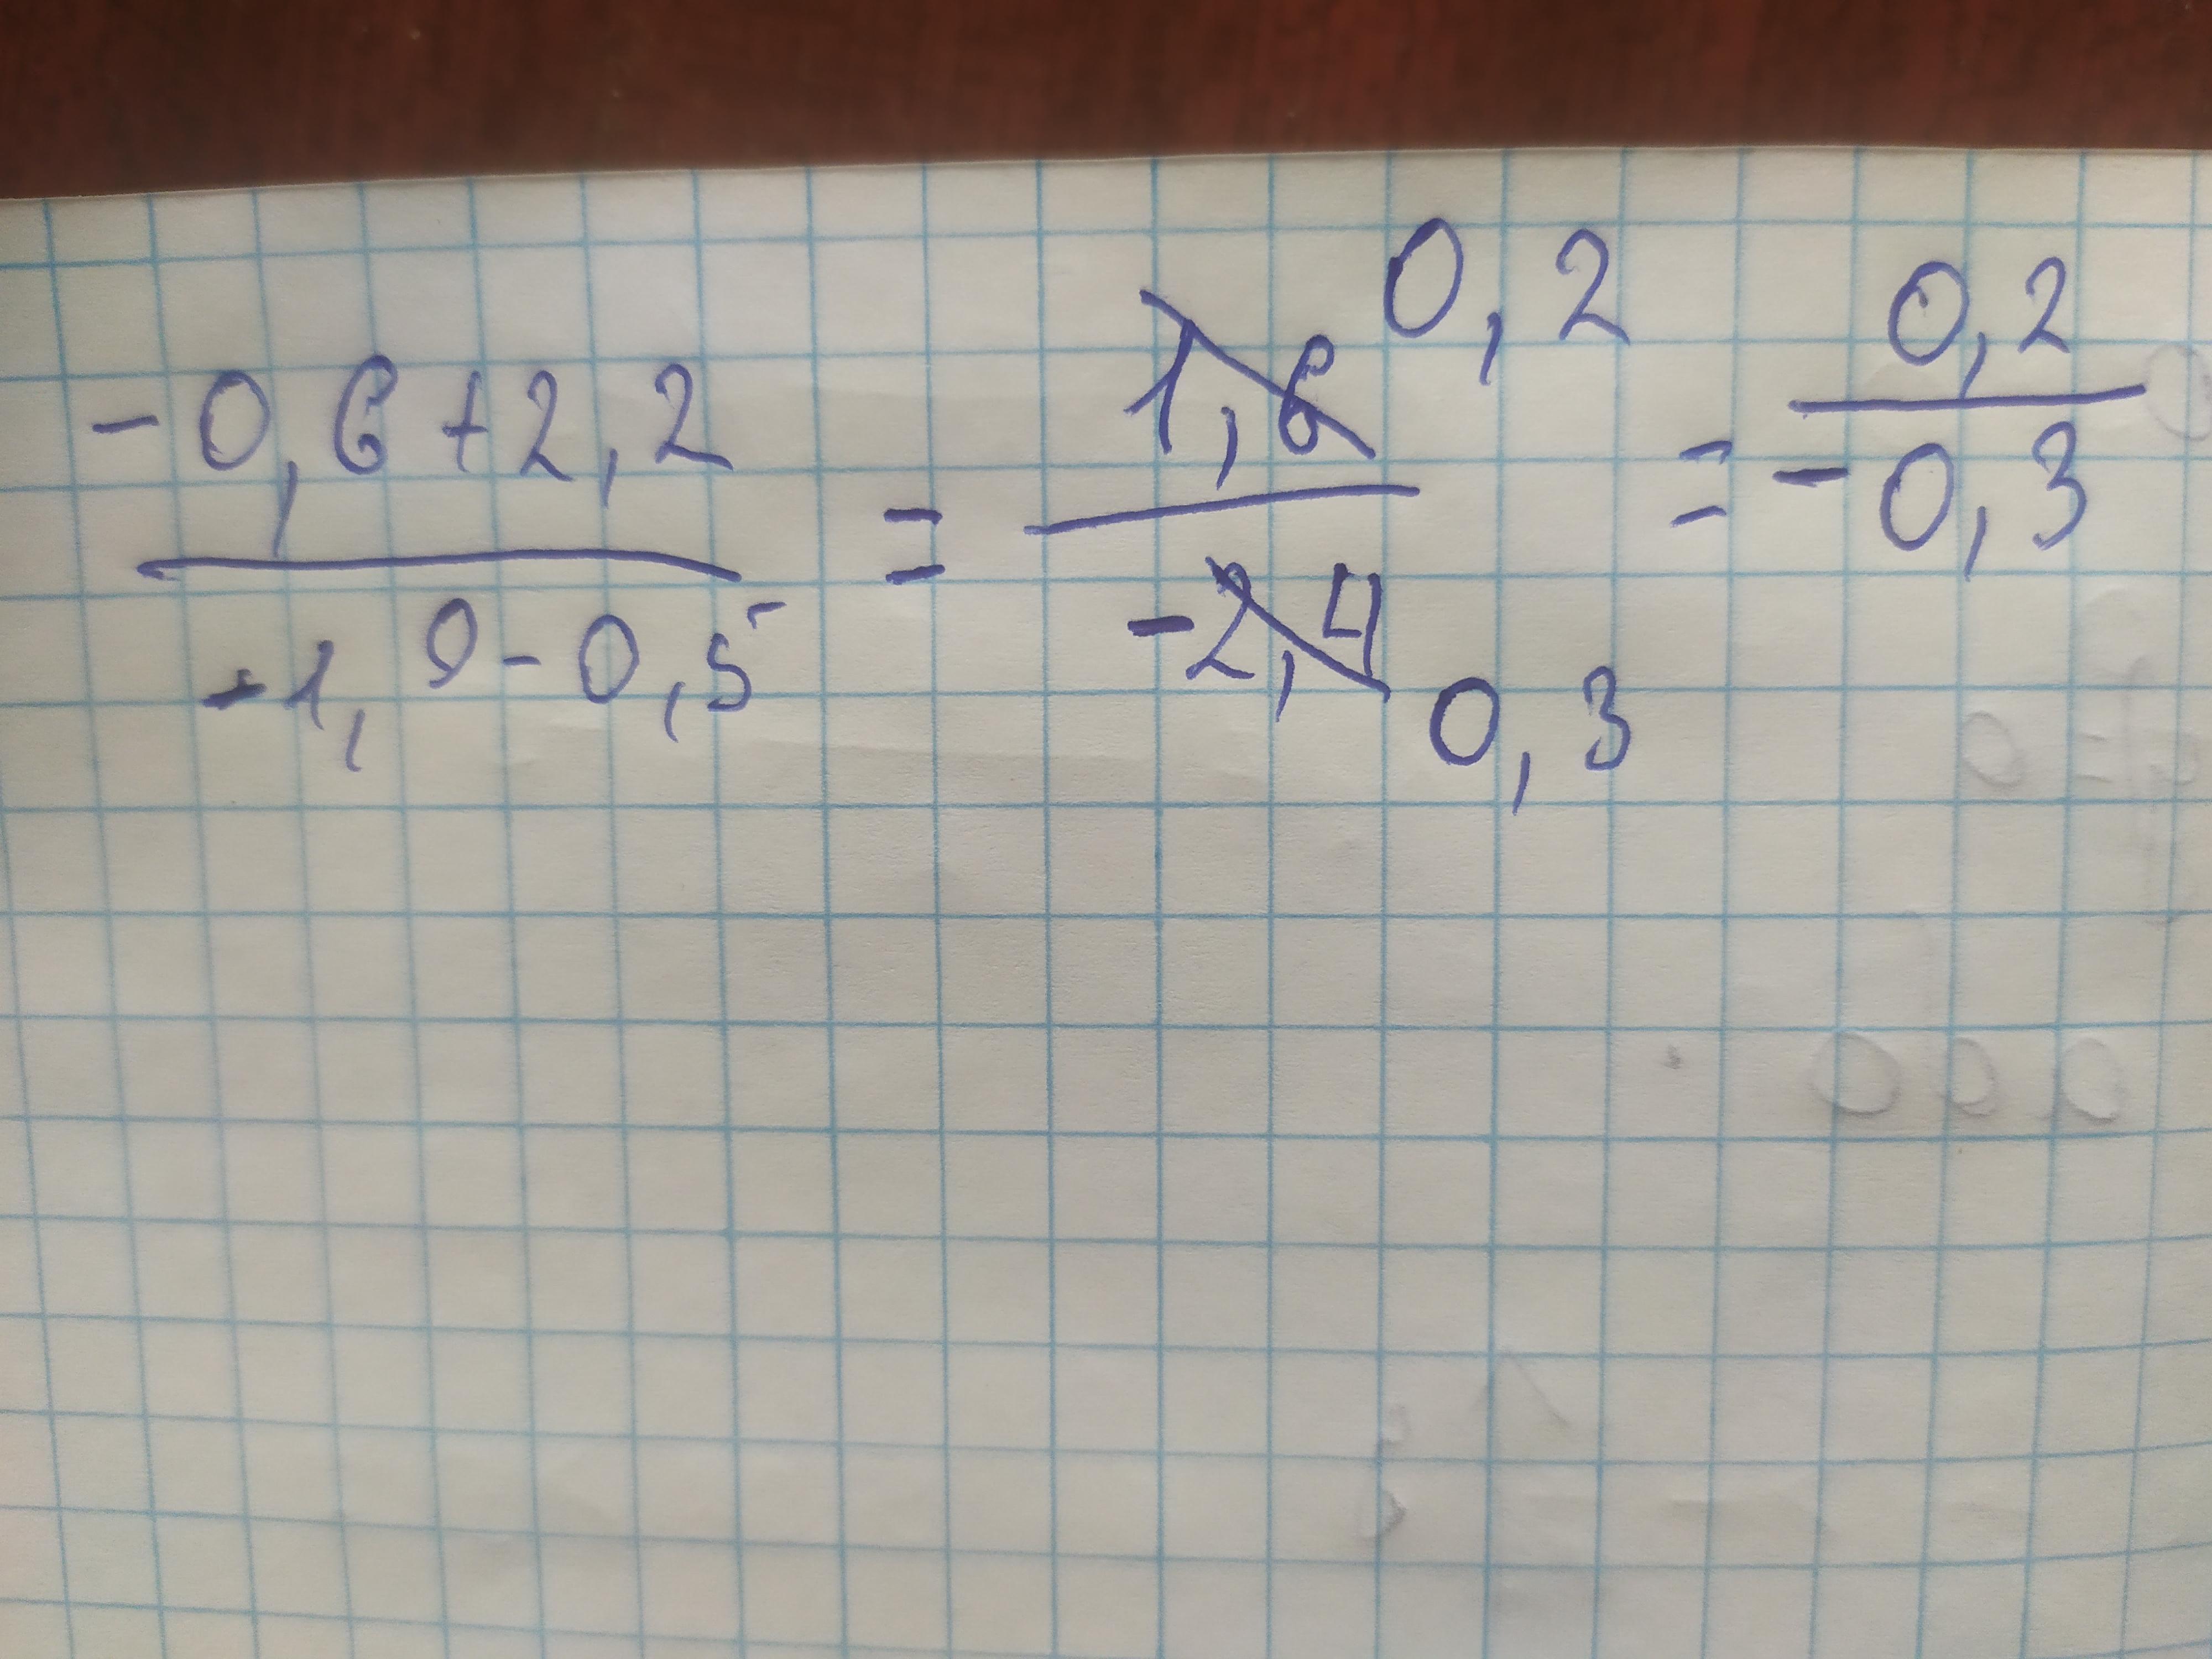 -0,6+2,2 / -1,9-0,5 = 1,6 0,2 / -2,4 0,3 = 0,2 / -0,3